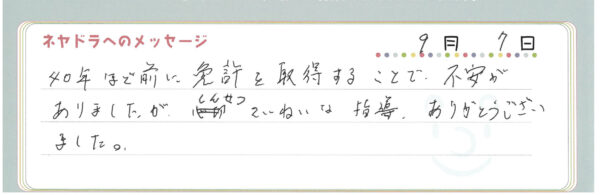 ネヤドラへのメッセージ
9月 7日
40年ほど前に 免許を取得することで、不安が
ありましたが、しんせつ ていねいな 指導、ありがとうござい
ました。